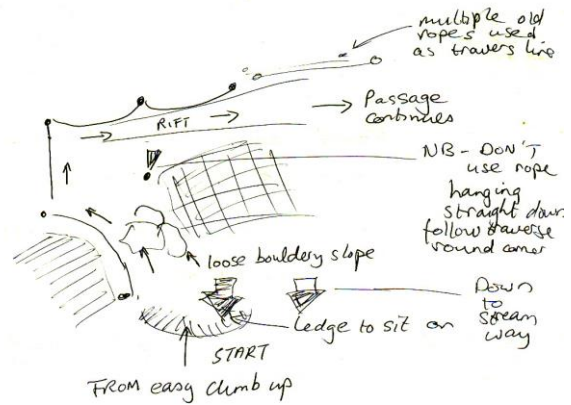 multiple old
ropes used
as travers line
RIFT
Passage
continues
NB - DON'T
use rope
hanging
straight down
follow traverse
round corner
loose bouldery slope
Down
to
stream
way
Ledge to sit on
START
FROM easy climb up